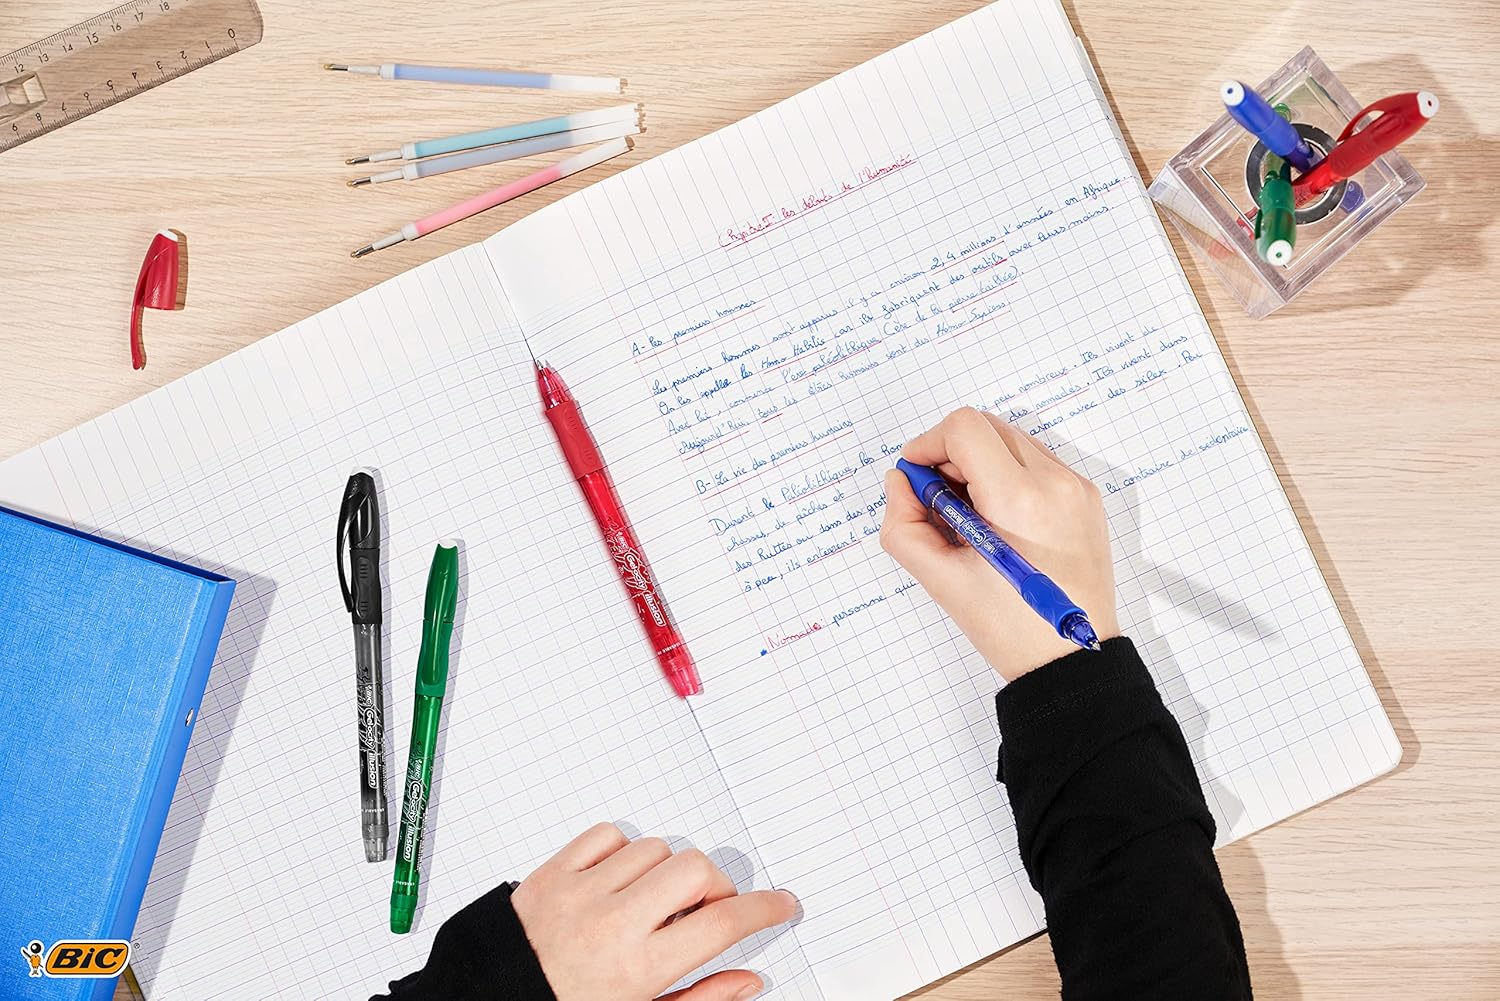 Chapitre I: les débuts de l'humanité
A- Les premiers hommes
Les premiers hommes sont apparus il y a environ 2,4 millions d'années en Afrique.
On les appelle les Homo Habilis car ils fabriquent des outils avec leurs mains.
Avec lui, commence l'ere paléolithique (ère de la pierre taillée).
Aujourd'hui, tous les êtres humains sont des Homo Sapiens.
B- La vie des premiers humains
Durant le Paléolithique, les hom peu nombreux. Ils vivent de
chasses, de pêches et des nomades. Ils vivent dans
des huttes ou dans des grot armes avec des silex. Peu
à peu, ils enterrent leurs
Nomade: personne qui le contraire de sédentaire.
BIC Gelocity illusion
BIC Gelocity illusion
BIC Gelocity illusion
BIC Gelocity
BIC
0 5 6 7 8
12 13 14 15 16 17 18